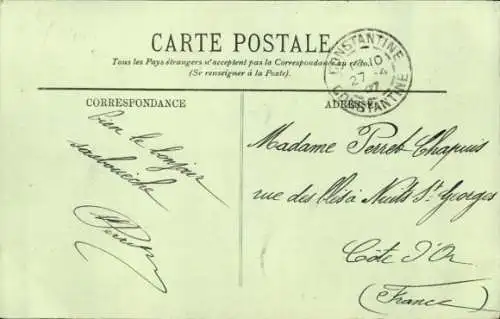 CARTE POSTALE
Tous les Pays étrangers n'acceptent pas la Correspondance au recto.
(Se renseigner à la Poste).
CONSTANTINE
10
27
07
CONSTANTINE
CORRESPONDANCE
ADRESSE
bien le bonjour
Madame Perret Chapuis
rue des
à Nuits St. Georges
Côte d'Or
(France)